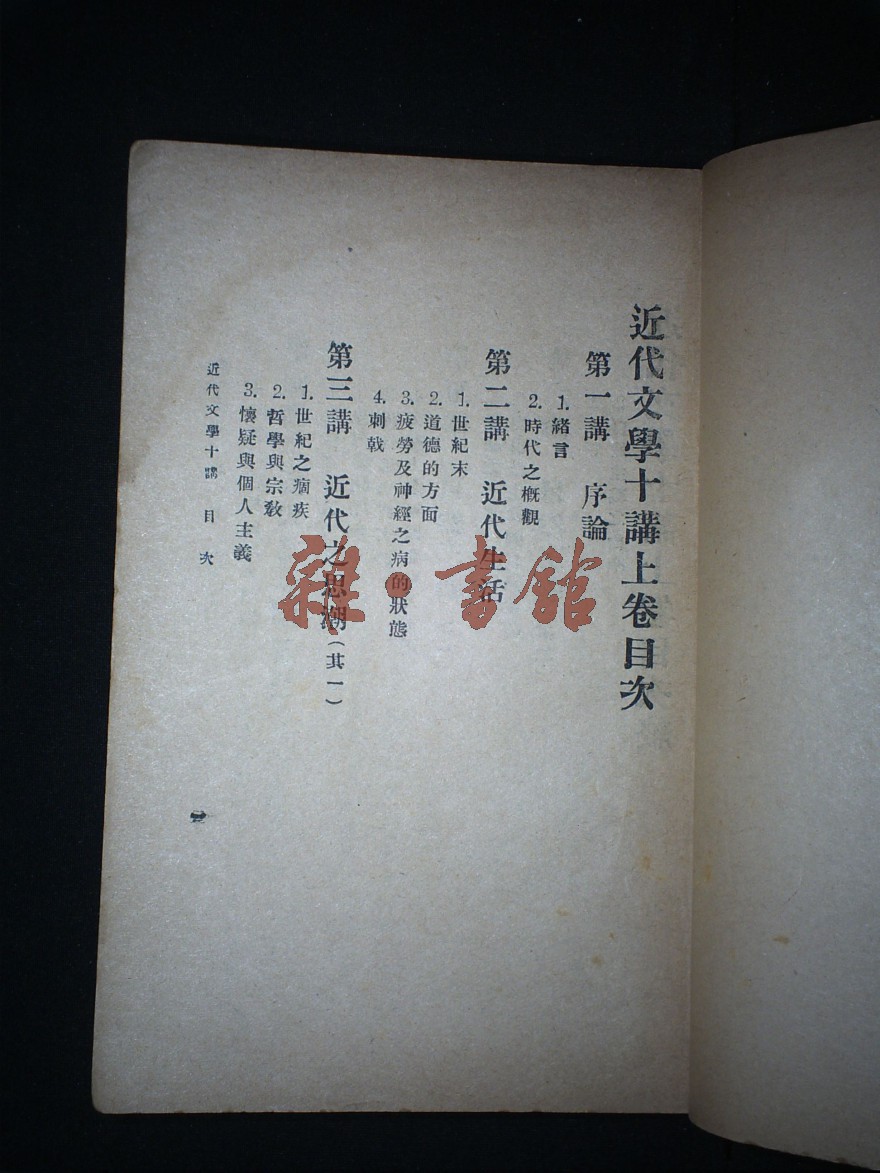 近代文學十講上卷目次
第一講 序論
1. 緒言
2. 時代之概觀
第二講 近代生活
1. 世紀末
2. 道德的方面
3. 疲勞及神經之病的狀態
4. 刺戟
第三講 近代之思潮（其一）
1. 世紀之痼疾
2. 哲學與宗教
3. 懷疑與個人主義
近代文學十講 目次
雜·書館